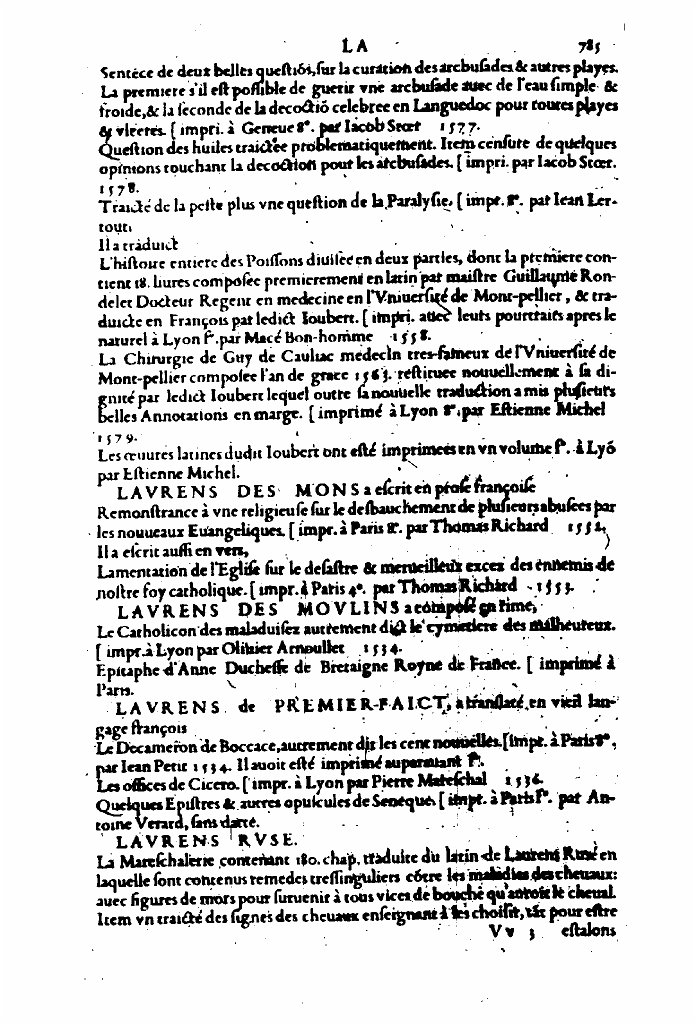 LA 785
Sentẽce de deux belles questiõs, sur la curation des arcbusades & autres playes.
La premiere s'il est possible de guerir vne arcbusade auec de l'eau simple &
froide, & la seconde de la decoctiõ celebree en Languedoc pour toutes playes
& vlceres. [ impri. à Geneue 8°. par Iacob Stoer 1577.
Question des huiles traictée problematiquement. Item censure de quelques
opinions touchant la decoction pour les arcbusades. [ impri. par Iacob Stoer.
1578.
Traicté de la peste plus vne question de la Paralysie. [ impr. 8°. par Iean Ler-
tout.
Il a traduict
L'histoire entiere des Poissons diuisée en deux parties, dont la premiere con-
tient 18. liures composee premierement en latin par maistre Guillaume Ron-
delet Docteur Regent en medecine en l'Vniuersité de Mont-pellier, & tra-
duicte en François par ledict Ioubert. [ impri. auec leurs pourtraits apres le
naturel à Lyon f°. par Macé Bon-homme 1558.
La Chirurgie de Guy de Cauliac medecin tres-fameux de l'Vniuersité de
Mont-pellier composee l'an de grace 1363. restituee nouuellement à sa di-
gnité par ledict Ioubert lequel outre sa nouuelle traduction a mis plusieurs
belles Annotations en marge. [ imprimé à Lyon 8°. par Estienne Michel
1579.
Les œuures latines dudit Ioubert ont esté imprimees en vn volume f°. à Lyõ
par Estienne Michel.
LAVRENS DES MONS a escrit en prose françoise
Remonstrance à vne religieuse sur le desbauchement de plusieurs abusees par
les nouueaux Euangeliques. [ impr. à Paris 8°. par Thomas Richard 1552.
Il a escrit aussi en vers,
Lamentation de l'Eglise sur le desastre & merueilleux excez des ennemis de
nostre foy catholique. [ impr. à Paris 4°. par Thomas Richard 1553.
LAVRENS DES MOVLINS a composé en rime,
Le Catholicon des maladuisez autrement dict le cymetiere des malheureux.
[ impr. à Lyon par Oliuier Arnoullet 1534.
Epitaphe d'Anne Duchesse de Bretaigne Royne de France. [ imprimé à
Paris.
LAVRENS de PREMIER-FAICT, a translaté en vieil lan-
gage françois
Le Decameron de Boccace, autrement dit les cent nouuelles. [impr. à Paris 8°,
par Iean Petit 1534. Il auoit esté imprimé auparauant f°.
Les offices de Cicero. [ impr. à Lyon par Pierre Mareschal 1536.
Quelques Epistres & autres opuscules de Seneque. [ impr. à Paris f°. par An-
toine Verard, sans datte.
LAVRENS RVSE.
La Mareschalerie contenant 180. chap. traduite du latin de Laurens Rusé en
laquelle sont contenus remedes tressinguliers cõtre les maladies des cheuaux:
auec figures de mors pour suruenir à tous vices de bouche qu'auroit le cheual.
Item vn traicté des signes des cheuaux enseignant à les choisir, tãt pour estre
Vv 3 estalons